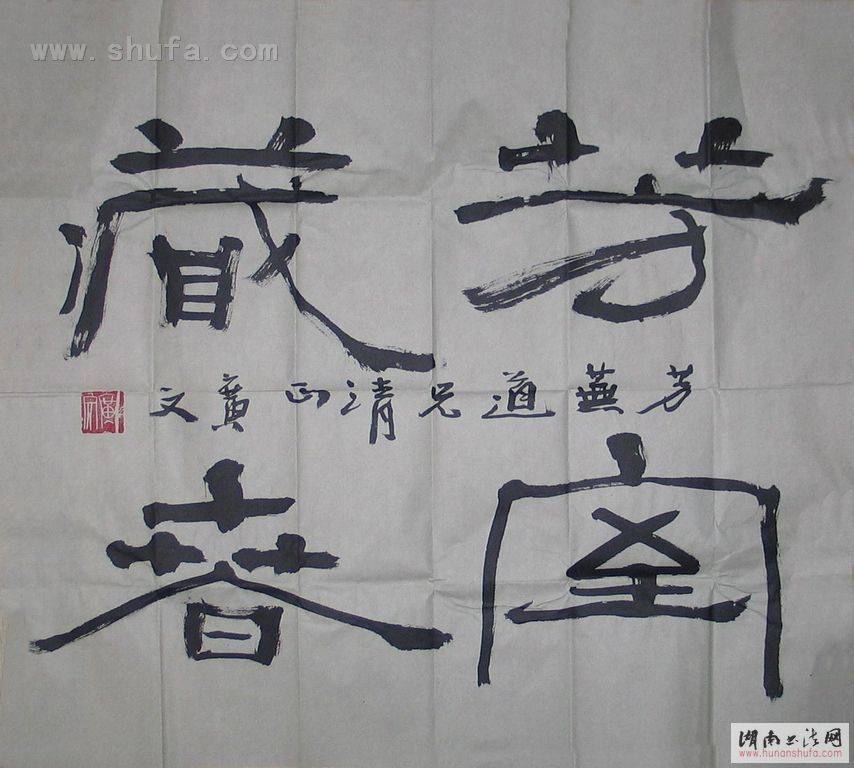 www.shufa.com
芳室
藏春
芳蕪道兄清正廣文
湖南书法网
www.hunanshufa.com